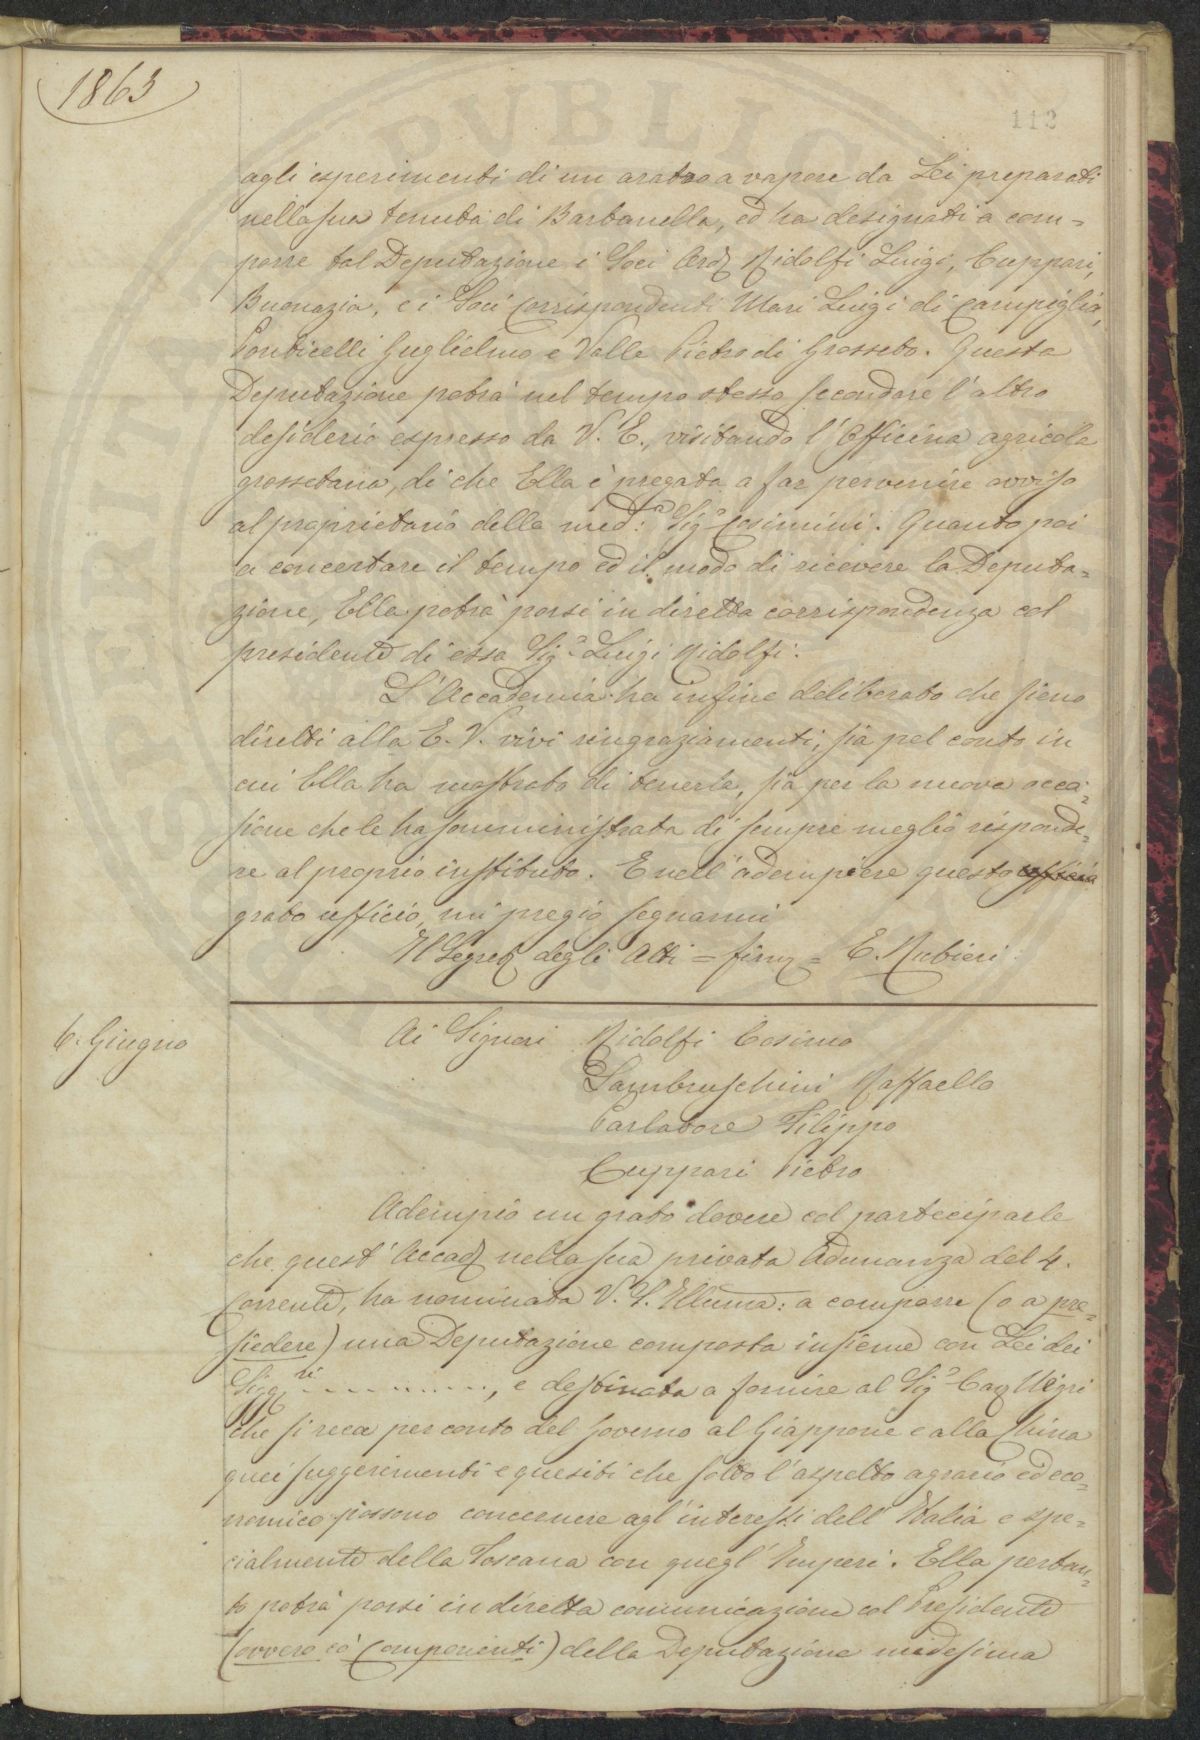 1863
112
agli esperimenti di un aratro a vapore da Lei preparati
nella sua tenuta di Barbanella, ed ha designati a com=
porre tal Deputazione i Soci Ord. Ridolfi Luigi, Cuppari,
Buonazia, e i Soci Corrispondenti Mari Luigi di Campiglia,
Ponticelli Guglielmo e Valle Pietro di Grosseto. Questa
Deputazione potrà nel tempo stesso secondare l'altro
desiderio espresso da V. E., visitando l'Officina agricola
grossetana, di che Ella è pregata a far pervenire avviso
al proprietario della med:a Sig.e Cosimini. Quanto poi
a concertare il tempo ed il modo di ricevere la Deputa=
zione, Ella potrà porsi in diretta corrispondenza col
presidente di essa Sig.e Luigi Ridolfi.
L'Accademia ha infine deliberato che sieno
diretti alla E. V. vivi ringraziamenti, sia pel conto in
cui Ella ha mostrato di tenerla, sia per la nuova occa=
sione che le ha somministrata di sempre meglio risponde=
re al proprio instituto. E nell'adempiere questo ufficio
grato ufficio, mi pregio segnarmi
Il Segret. degli Atti = firm. = E. Rubieri
6. Giugno
Ai Signori Ridolfi Cosimo
Lambruschini Raffaello
Parlatore Filippo
Cuppari Pietro
Adempio un grato dovere col parteciparle
che quest'Accad. nella sua privata Adunanza del 4.
Corrente, ha nominata V. S. Illuma: a comporre (o a pre=
siedere) una Deputazione composta insieme con Lei dei
Sigg.ri ............, e destinata a fornire al Sig.e Cav. Negri
che si reca per conto del Governo al Giappone e alla China
quei suggerimenti e quesiti che sotto l'aspetto agrario ed eco=
nomico possono concernere agl'interessi dell'Italia e spe=
cialmente della Toscana con quegl'Imperi. Ella pertan=
to potrà porsi in diretta comunicazione col Presidente
(ovvero co' Componenti) della Deputazione medesima